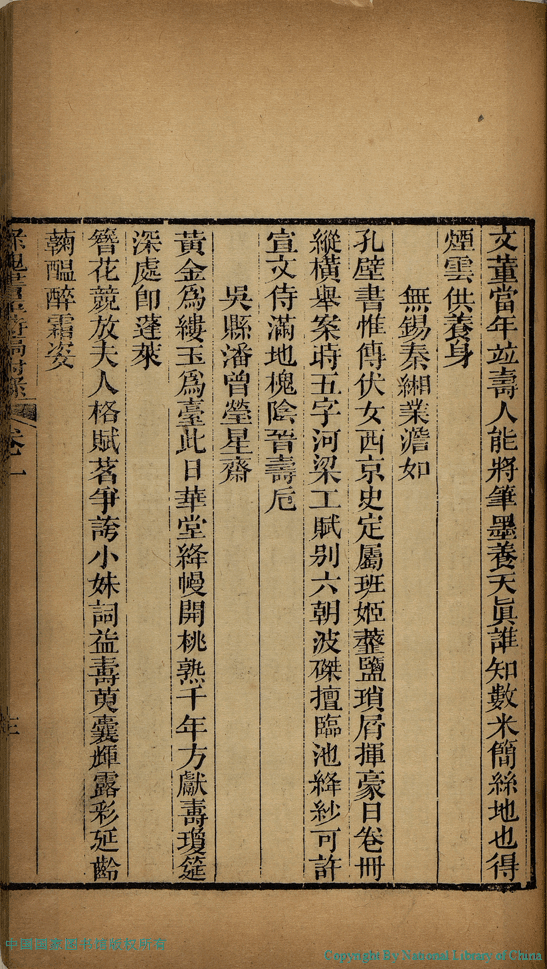 文董當年並壽人能將筆墨養天眞誰知數米簡絲地也得
煙雲供養身
無錫秦緗業澹如
孔壁書惟傳伏女西京史定屬班姬虀鹽瑣屑揮豪日卷冊
縱橫舉案時五字河梁工賦別六朝波磔擅臨池絳紗可許
宣文侍滿地槐陰晉壽卮
吳縣潘曾瑩星齋
黃金爲縷玉爲臺此日華堂絳幔開桃熟千年方獻壽瓊筵
深處卽蓬萊
簪花競放夫人格賦茗爭誇小妹詞益壽萸囊輝露彩延齡
蘜醞醉霜姿
詩稿附錄
卷一
Copyright By National Library of China